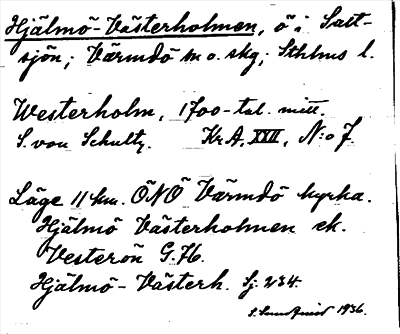 Hjälmö-Västerholmen, ö i Salt-
sjön; Värmdö sn o. skg; Sthlms l.
Westerholm, 1700-tal. mitt.
S. von Schultz. Kr.A. XXII, N:o 7.
Läge 11 km. ÖNÖ Värmdö kyrka.
Hjälmö Västerholmen ek.
Vesterön G.Kb.
Hjälmö-Västerh. Sj. 234.
1936.